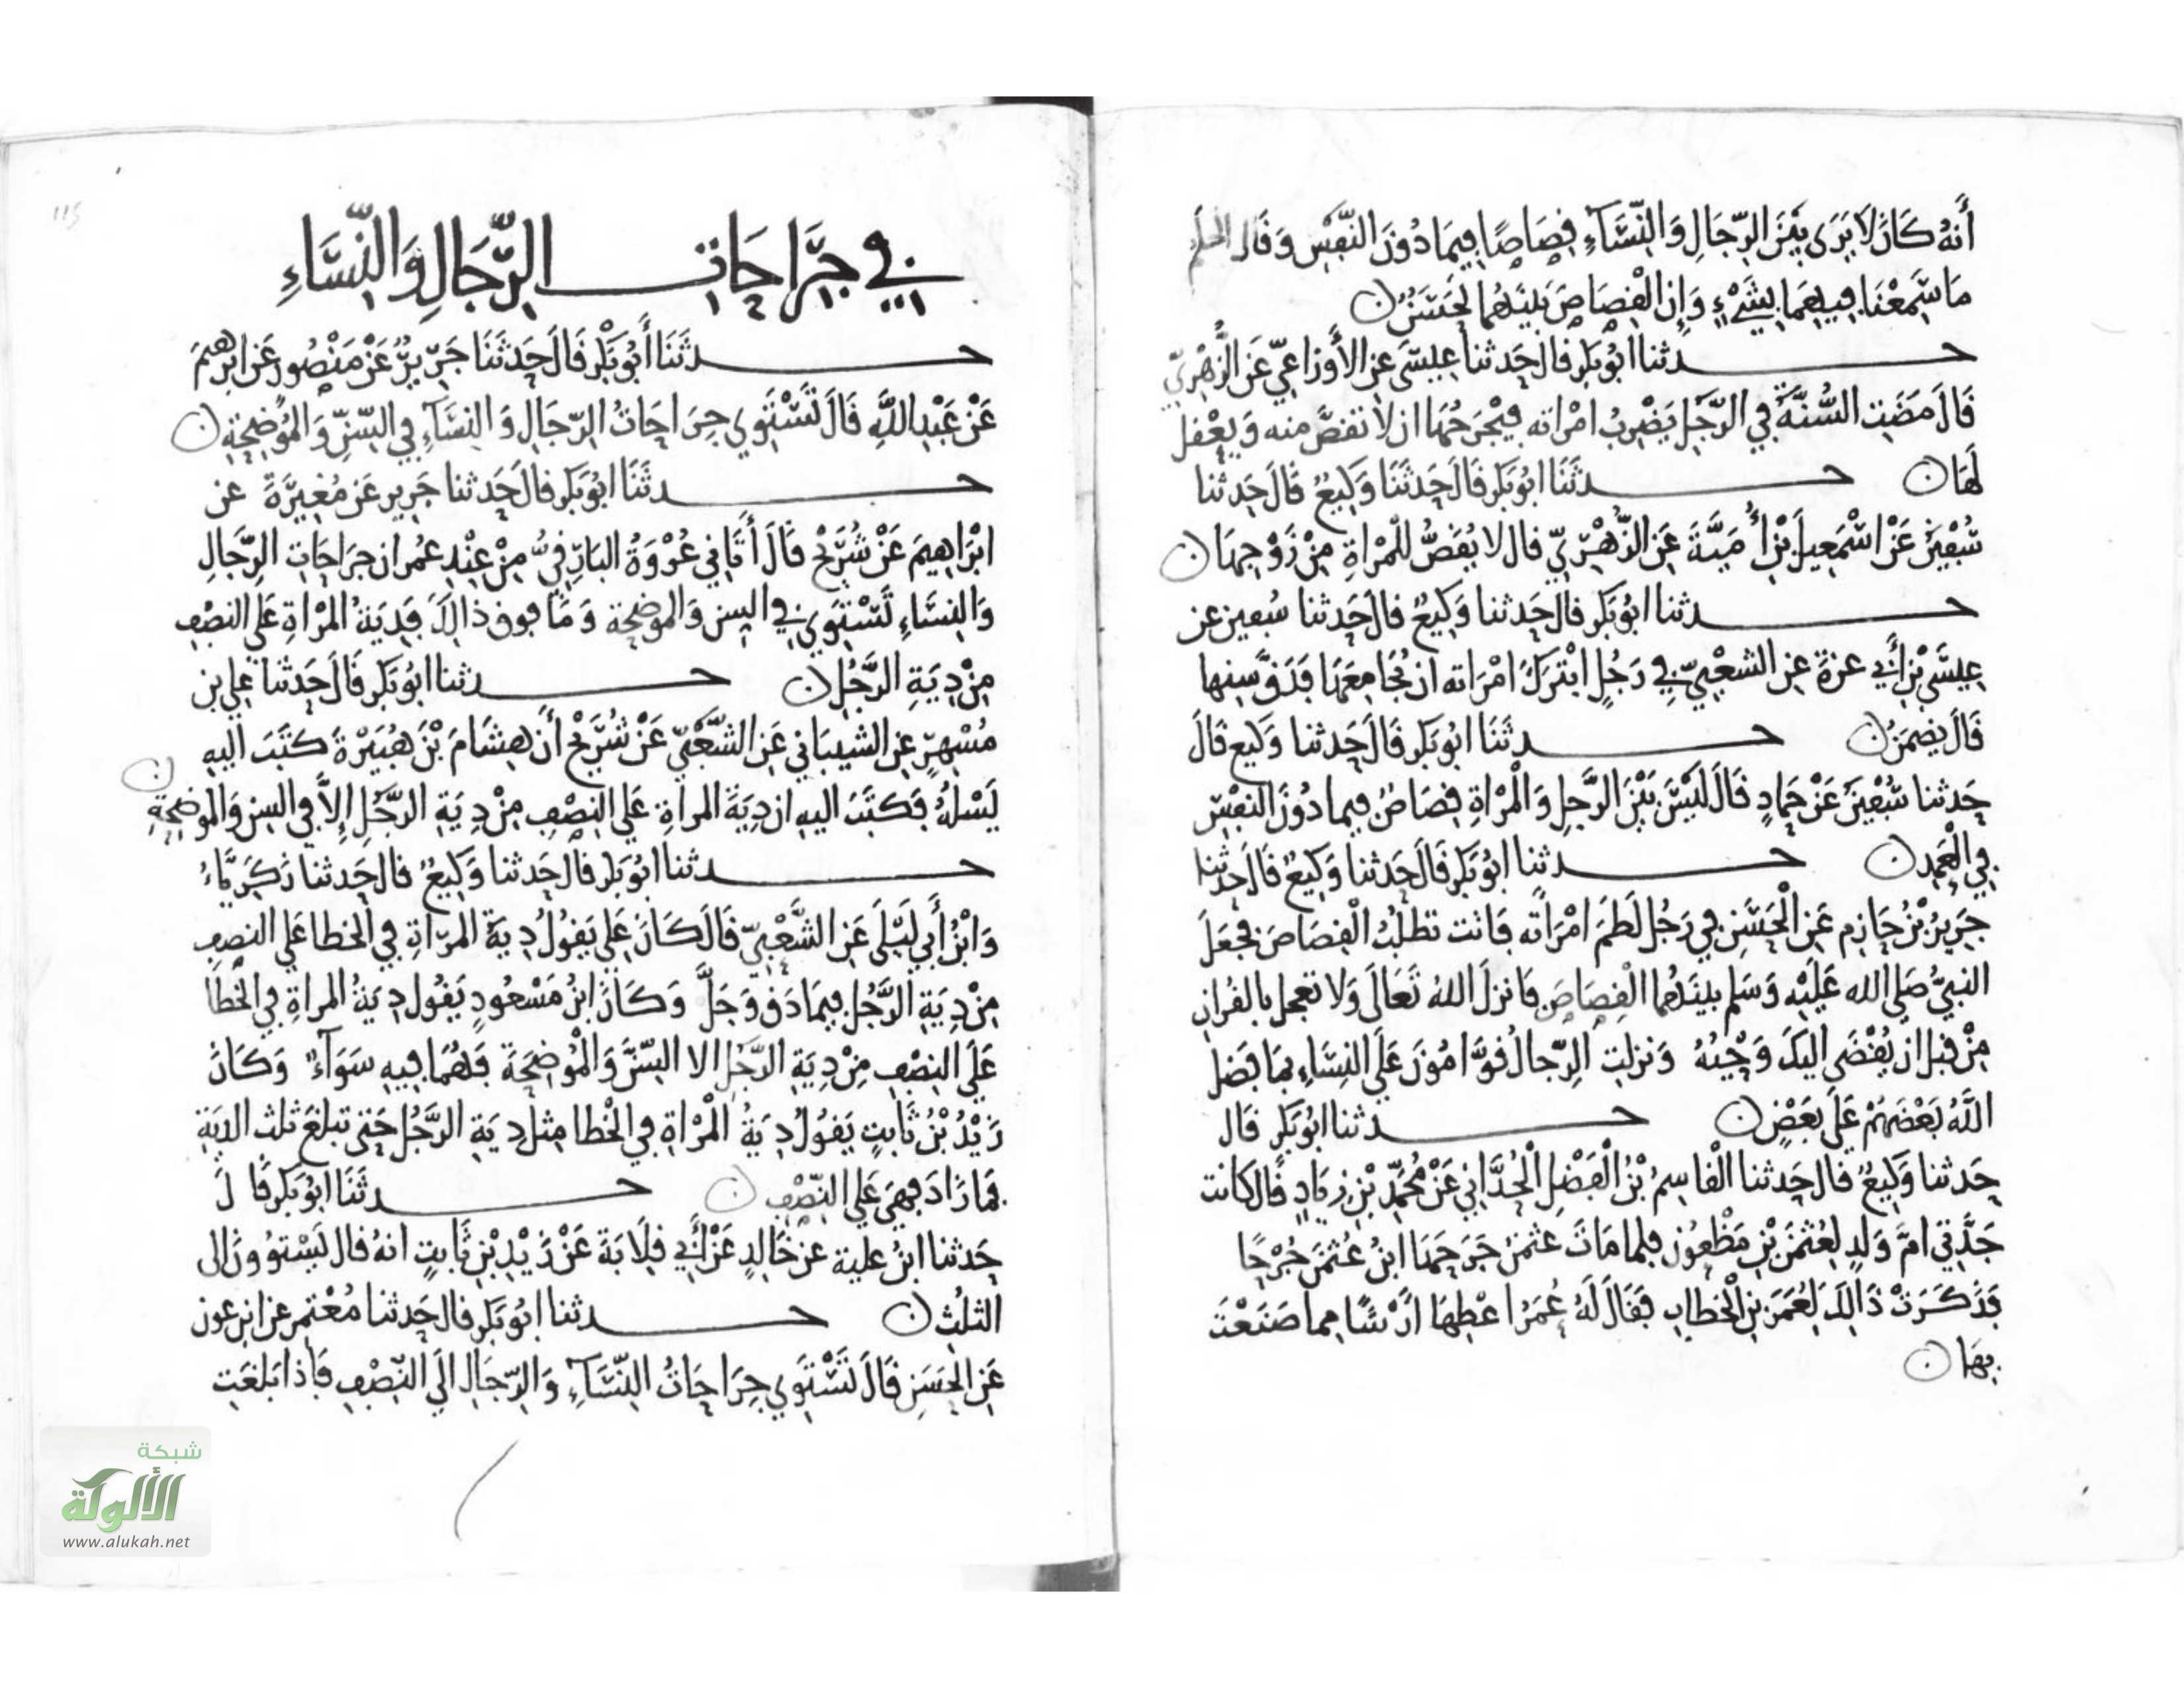 أَنهُ كَانَ لَا يَرَى بَيْنَ الرِّجَالِ وَالنِّسَاءِ قِصَاصًا فِيمَا دُونَ النَّفْسِ وَقَالَ الحكم
مَا سَمِعْنَا فِيهِمَا بِشَيْءٍ وَإِن الْقِصَاصَ بَيْنَهُمَا لَحَسَنٌ
حدثنا ابُو بَكر قال حَدثنا عِيسَى عن الأَوْزَاعِيّ عَن الزُّهْرِيّ
قَالَ مَضَتِ السُّنَّةُ فِي الرَّجُلِ يَضْرِبُ امْرَاته فيَجْرَحُهَا ان لا تقتصّ منه وَيعْقل
لَهَا حدثَنَا ابُو بَكر قَالَ حَدثَنَا وَكِيعٌ قَالَ حَدثنا
سُفْيَنُ عَنْ اسْمَعِيلَ بْنِ أُمَيَّةَ عَنِ الزُّهْرِيِّ قال لا يُقَصُّ لِلْمَرْاةِ مِنْ زَوْجِهَا
حدثنا ابُو بَكر قالَ حَدثنا وَكِيعٌ قال حَدثنا سُفين عن
عِيسَى بْنِ أَبِي عزةَ عن الشعْبِيّ في رَجُلٍ ابْتَرَكَ امْرَاته ان يُجَامِعَهَا فَدَقَّ سِنها
قَالَ يضمَنُ حدثَنَا ابُو بَكر قَالَ حَدثنا وَكيع قَالَ
حَدثنا سُفْيَنُ عَنْ حَمادٍ قَالَ لَيْسَ بَيْنَ الرَّجلِ وَالْمَرْاةِ قِصَاصٌ فيما دُونَ النفْسِ
فِي الْعَمدِ حدثنا ابُو بَكر قَالَ حَدثنا وَكِيعٌ قَالَ حَدثنا
جَرِيرُ بْنُ حَازِم عَنِ الْحَسَنِ فِي رَجُلٍ لَطَمَ امْرَاته فَاتت تطلُبُ الْقِصَاصَ فجعَلَ
النبيُّ صَلى الله عَلَيْهِ وَسَلم بينَهُمَا الْقِصَاصَ فَانزل اللهُ تَعَالَى وَلا تعجل بالقران
مِنْ قبل ان يُقْضَى اليكَ وَحْيُهُ وَنزلت الرِّجالُ قوَّامُونَ عَلَى النسَاءِ بمَا فَضل
اللَّهُ بَعْضَهُمْ عَلَى بَعْضٍ حدثنا ابُو بَكر قَال
حَدثنا وَكِيعٌ قال حَدثنا الْقَاسِمُ بْنُ الْفَضْلِ الْحُدَّانِي عَنْ مُحَمَّدِ بْنِ زيَادٍ قَالَ كانت
جَدَّتِي امَّ وَلَدٍ لِعُثمَنَ بْنِ مَظْعُون فلما مَاتَ عثمنُ جَرَحَهَا ابنُ عُثمَنَ جُرْحًا
فَذَكَرَتْ ذَالِكَ لِعُمَرَ بن الْخَطابِ فَقَالَ لَهُ عُمَرُ اعْطِهَا ارْشًا مما صَنَعْتَ
بِهَا
115
في جِرَاحَاتِ الرِّجَالِ وَالنِّسَاءِ
حدثَنَا أَبُو بَكْرٍ قَالَ حَدثَنَا جَرِيرٌ عَنْ مَنْصُورٍ عَن ابْرهيمَ
عَنْ عَبْدِ اللَّهِ قَالَ تَسْتَوِي جِرَاحَاتُ الرِّجَالِ وَالنِسَاءِ فِي السِّنِّ وَالمُوضِحَةِ
حدثَنَا ابُو بَكر قَالَ حَدثنا جَرير عَن مُغِيرَةَ عن
ابْرَاهِيمَ عَنْ شُرَيْحٍ قَالَ أَتَانِي عُرْوَةُ البَارِقِيُّ مِنْ عِنْدِ عمُر ان جرَاحَاتِ الرِّجَالِ
وَالنِسَاءِ تَسْتَوِي في السِن وَالموضحَة وَمَا فوق ذالِكَ فَدِيَةُ المَرْاةِ عَلَى النصْفِ
مِنْ دِيَةِ الرَّجُلِ حدثنا ابُو بَكر قَالَ حَدثنا عَلِي بن
مُسْهِرٍ عن الشيبَانِي عَن الشَّعْبِيّ عَنْ شُرَيْحٍ أَن هِشَامَ بْنَ هُبَيْرَةَ كَتَبَ اليهِ
يَسْلهُ فَكتَبَ اليهِ ان دِيَةَ المراةِ عَلى النِصْفِ مِنْ دِيَةِ الرجُلِ إِلاَّ في السِن وَالموضحَةِ
حدثنا ابُو بَكر قال حَدثنا وَكِيعٌ قال حَدثنا زكَرِيَّاءُ
وَابْنُ أَبِي لَيْلَى عَنِ الشَّعْبِيِّ قَالَ كَانَ عَلِي يَقُولُ دِيَةُ المَرْاةِ في الخطا عَلى النصفِ
مِنْ دِيَةِ الرَّجُلِ فِيمَا دَق وَجَلَّ وَكَانَ ابْنُ مَسْعُودٍ يَقُول دِيَةُ المراةِ في الخَطَا
عَلَى النصْفِ مِنْ دِيَةِ الرَّجُلِ الا السِّنَّ وَالْمُوضِحَةَ فَهُمَا فِيهِ سَوَاءٌ وَكَانَ
زَيْدُ بْنُ ثَابِتٍ يَقُولُ دِيَةُ الْمَرْاةِ فِي الْخَطا مِثل دِيَةِ الرَّجُلِ حَتى تبلغَ ثلث الديَةِ
فَمَا زَادَ فهِيَ عَلى النِّصْفِ حدثَنَا ابُو بَكر قَالَ
حَدثنا ابنُ علية عن خَالِدٍ عَنْ أَبِي قِلَابَةَ عَنْ زَيْدِ بْنِ ثَابِتٍ انهُ قال يَسْتوُونَ الى
الثلُث حدثنا ابُو بَكر قال حَدثنا مُعْتمِر عن ابن عون
عَنِ الحَسَنِ قَالَ تَسْتَوِي جِرَاحَاتُ النِّسَاءِ وَالرِّجَالِ الَى النِّصْفِ فَاذا بَلغَتِ
شبكة
الألوكة
www.alukah.net